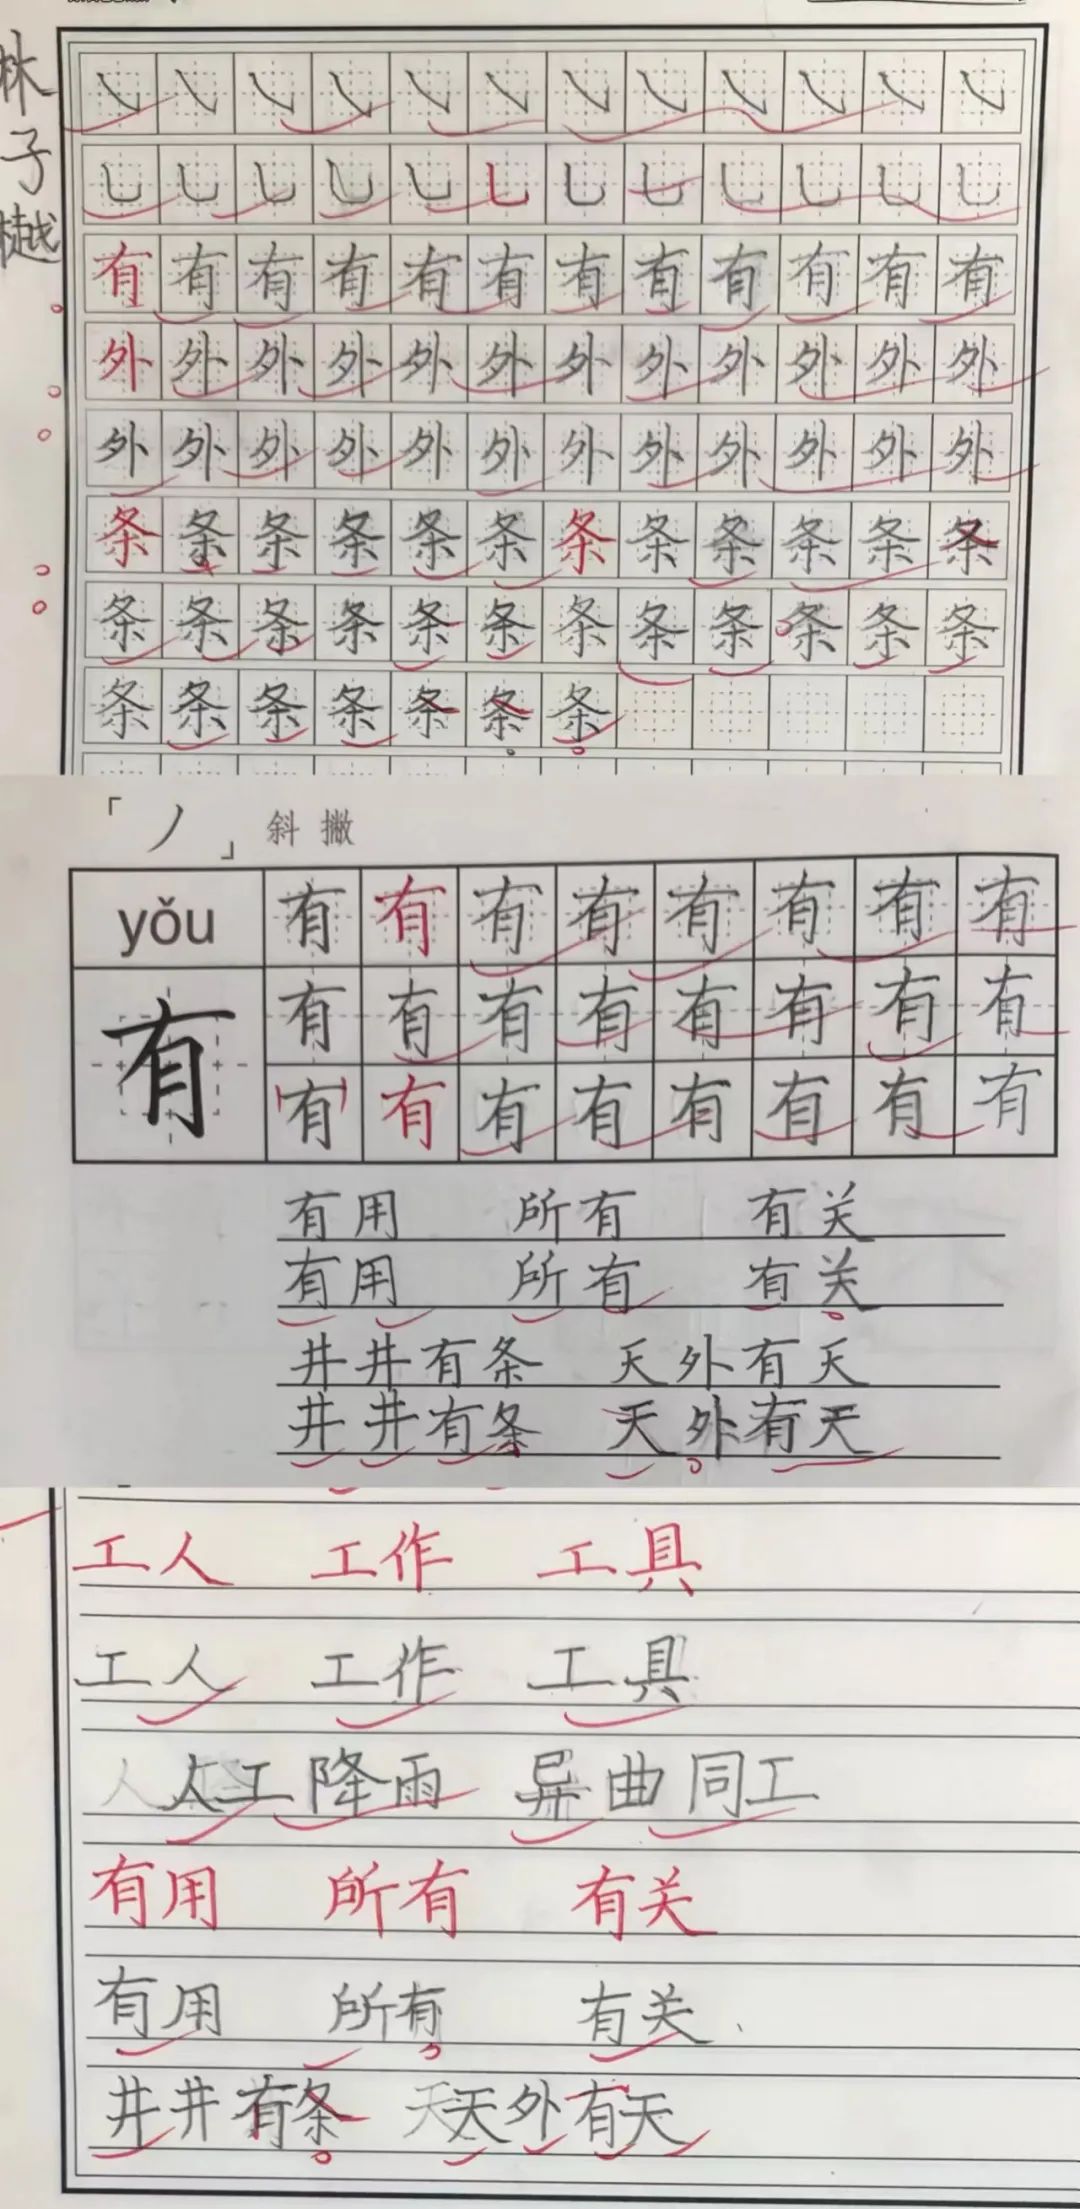 林子樾
有有有有有有有有有有有有
外外外外外外外外外外外外
外外外外外外外外外外外外
条条条条条条条条条条条条
条条条条条条条条条条条条
条条条条条条条
「丿」斜撇
yǒu 有有有有有有有有
有 有有有有有有有有
有有有有有有有有
有用 所有 有关
有用 所有 有关
井井有条 天外有天
井井有条 天外有天
工人 工作 工具
工人 工作 工具
人人工降雨 异曲同工
有用 所有 有关
有用 所有 有关、
井井有条 天天外有天